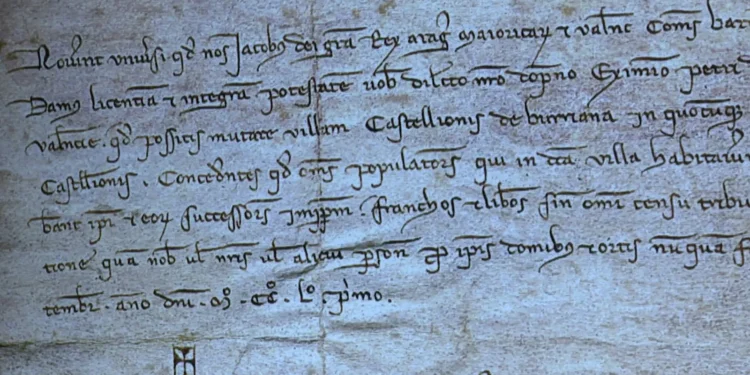 Noverint universi qd nos Jacobus dei gra Rex arag maioricar et valenc Comes bar
Damus licentiam et integram potestatem vob dilecto nro Eximio petri
valencie. qd possitis mutare villam Castellionis de burriana in quocumq
Castellionis. Concedentes qd oms populatores qui in dca villa habitaver
ipi et eor successores imppm. franchos et liberos sin omi censu tribu
tione qua nob ul nris ul alicui person p ipis domibus et ortis nunqua
tembr. ano dni. mo. cco. Lo. primo.